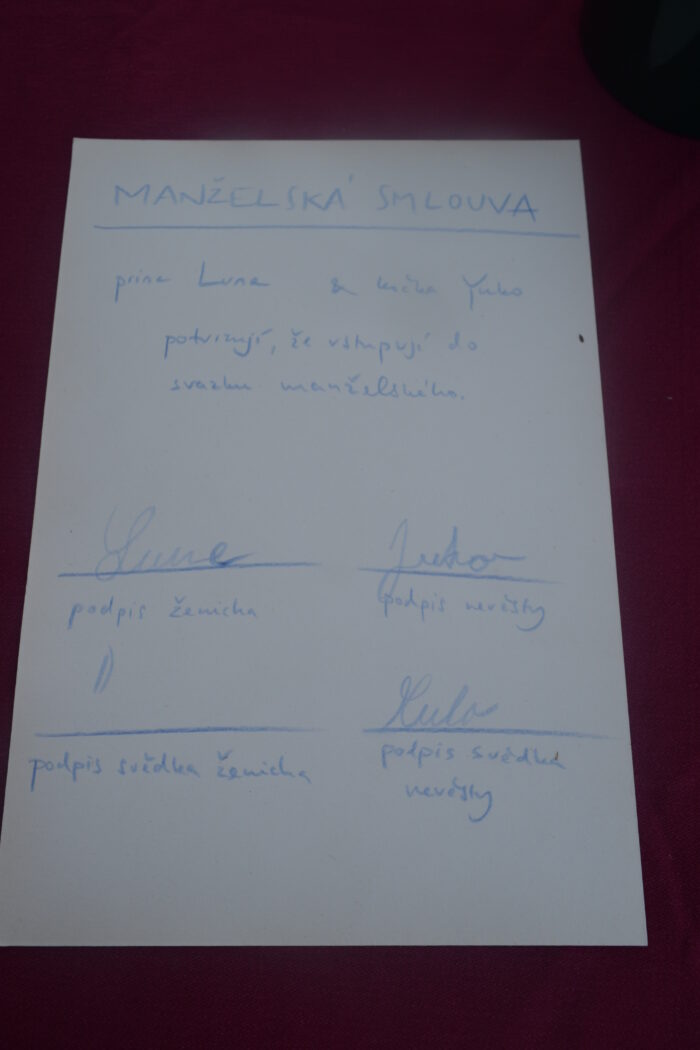 MANŽELSKÁ SMLOUVA
Luna & kočka Yuko
potvrzují, že vstupují do
svazku manželského.
Luna Yuko
podpis ženicha podpis nevěsty
podpis svědka ženicha podpis svědka
nevěsty